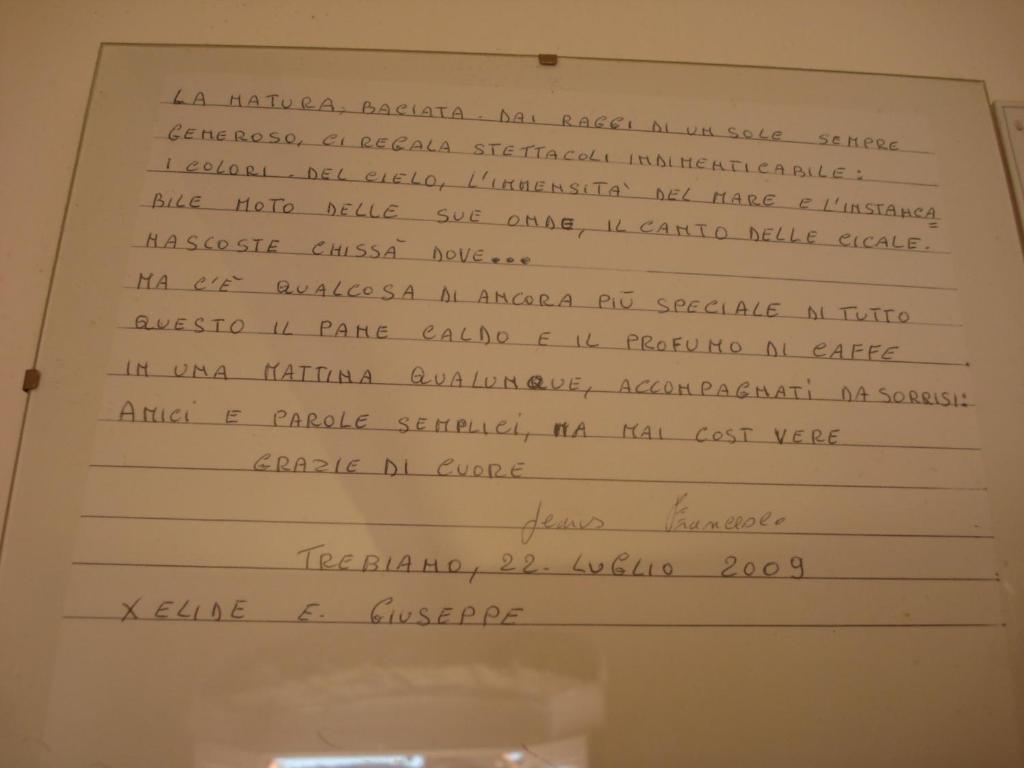 LA NATURA, BACIATA DAI RAGGI DI UN SOLE SEMPRE
GENEROSO, CI REGALA STETTACOLI INDIMENTICABILE:
I COLORI DEL CIELO, L'IMMENSITA' DEL MARE E L'INSTANCA=
BILE MOTO DELLE SUE ONDE, IL CANTO DELLE CICALE.
NASCOSTE CHISSÀ DOVE...
MA C'È QUALCOSA DI ANCORA PIÙ SPECIALE DI TUTTO
QUESTO IL PANE CALDO E IL PROFUMO DI CAFFE
IN UNA MATTINA QUALUNQUE, ACCOMPAGNATI DA SORRISI:
AMICI E PAROLE SEMPLICI, MA MAI COSI VERE
GRAZIE DI CUORE
Francesco
TREBIANO, 22. LUGLIO 2009
X ELIDE E. GIUSEPPE